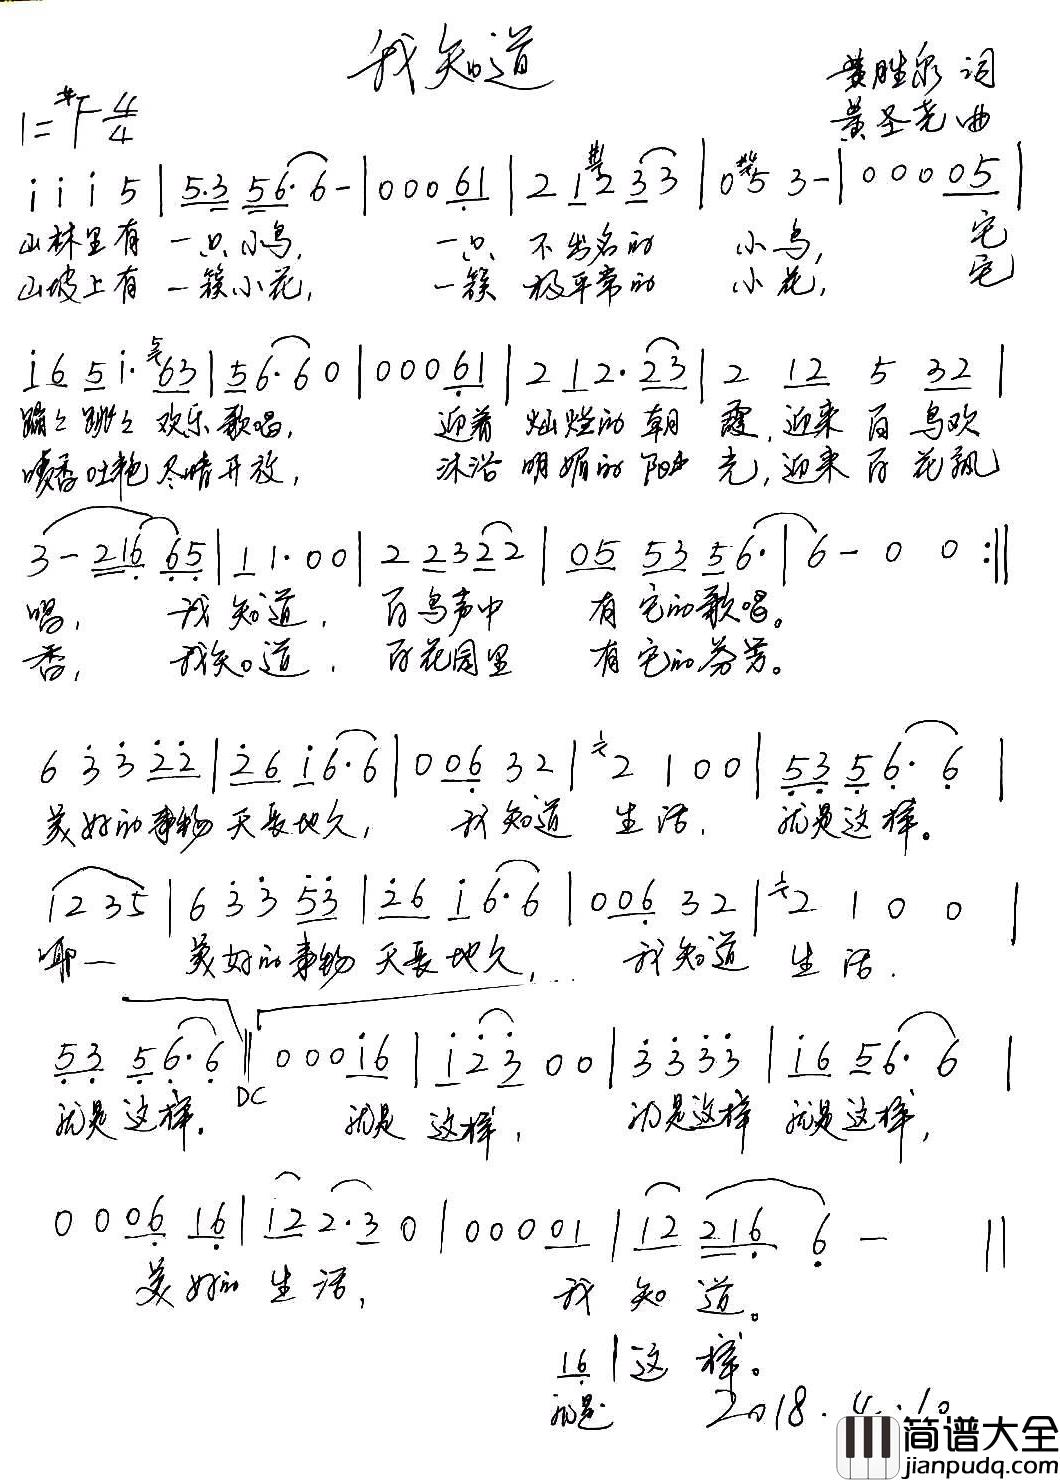 我知道
黄胜泉 词
1=#F 4/4
黄圣尧 曲
i i i 5 | 5.3 56. 6 - | 0 0 0 61 | 2 1 2 33 | 0 5 3 - | 0 0 0 05 |
山林里有 一只小鸟, 一只 不出名的 小鸟, 它
山坡上有 一簇小花, 一簇 极平常的 小花, 它
i6 5 i. 63 | 56. 6 0 | 0 0 0 61 | 2 12. 23 | 2 12 5 32 |
蹦蹦跳跳 欢乐歌唱, 迎着 灿烂的 朝 霞, 迎来 百 鸟欢
喷香吐艳 尽情开放, 沐浴 明媚的 阳 光, 迎来 百 花飘
3 - 216 65 | 1 1. 0 0 | 2 2322 | 05 53 56. | 6 - 0 0 :||
唱, 我知道, 百鸟声中 有它的歌唱。
香, 我知道, 百花园里 有它的芬芳。
6 3 3 22 | 26 i6. 6 | 0 06 32 | 2 1 0 0 | 53 56. 6 |
美好的事物 天长地久, 我知道 生活, 就是这样。
1235 | 6 3 3 53 | 26 i6. 6 | 006 32 | 2 1 0 0 |
耶— 美好的事物 天长地久, 我知道 生活,
53 56. 6 || 0 0 0 i6 | i 2 3 0 0 | 3 3 3 3 | i6 56. 6 |
DC
就是这样。 就是 这样, 就是这样 就是这样,
0 0 06 16 | 12 2.3 0 | 0 0 0 01 | 12 216 6 - ||
美好的 生活, 我 知 道。
16 | 这 样。
就是 2018.4.10
简谱大全
jianpudq.com